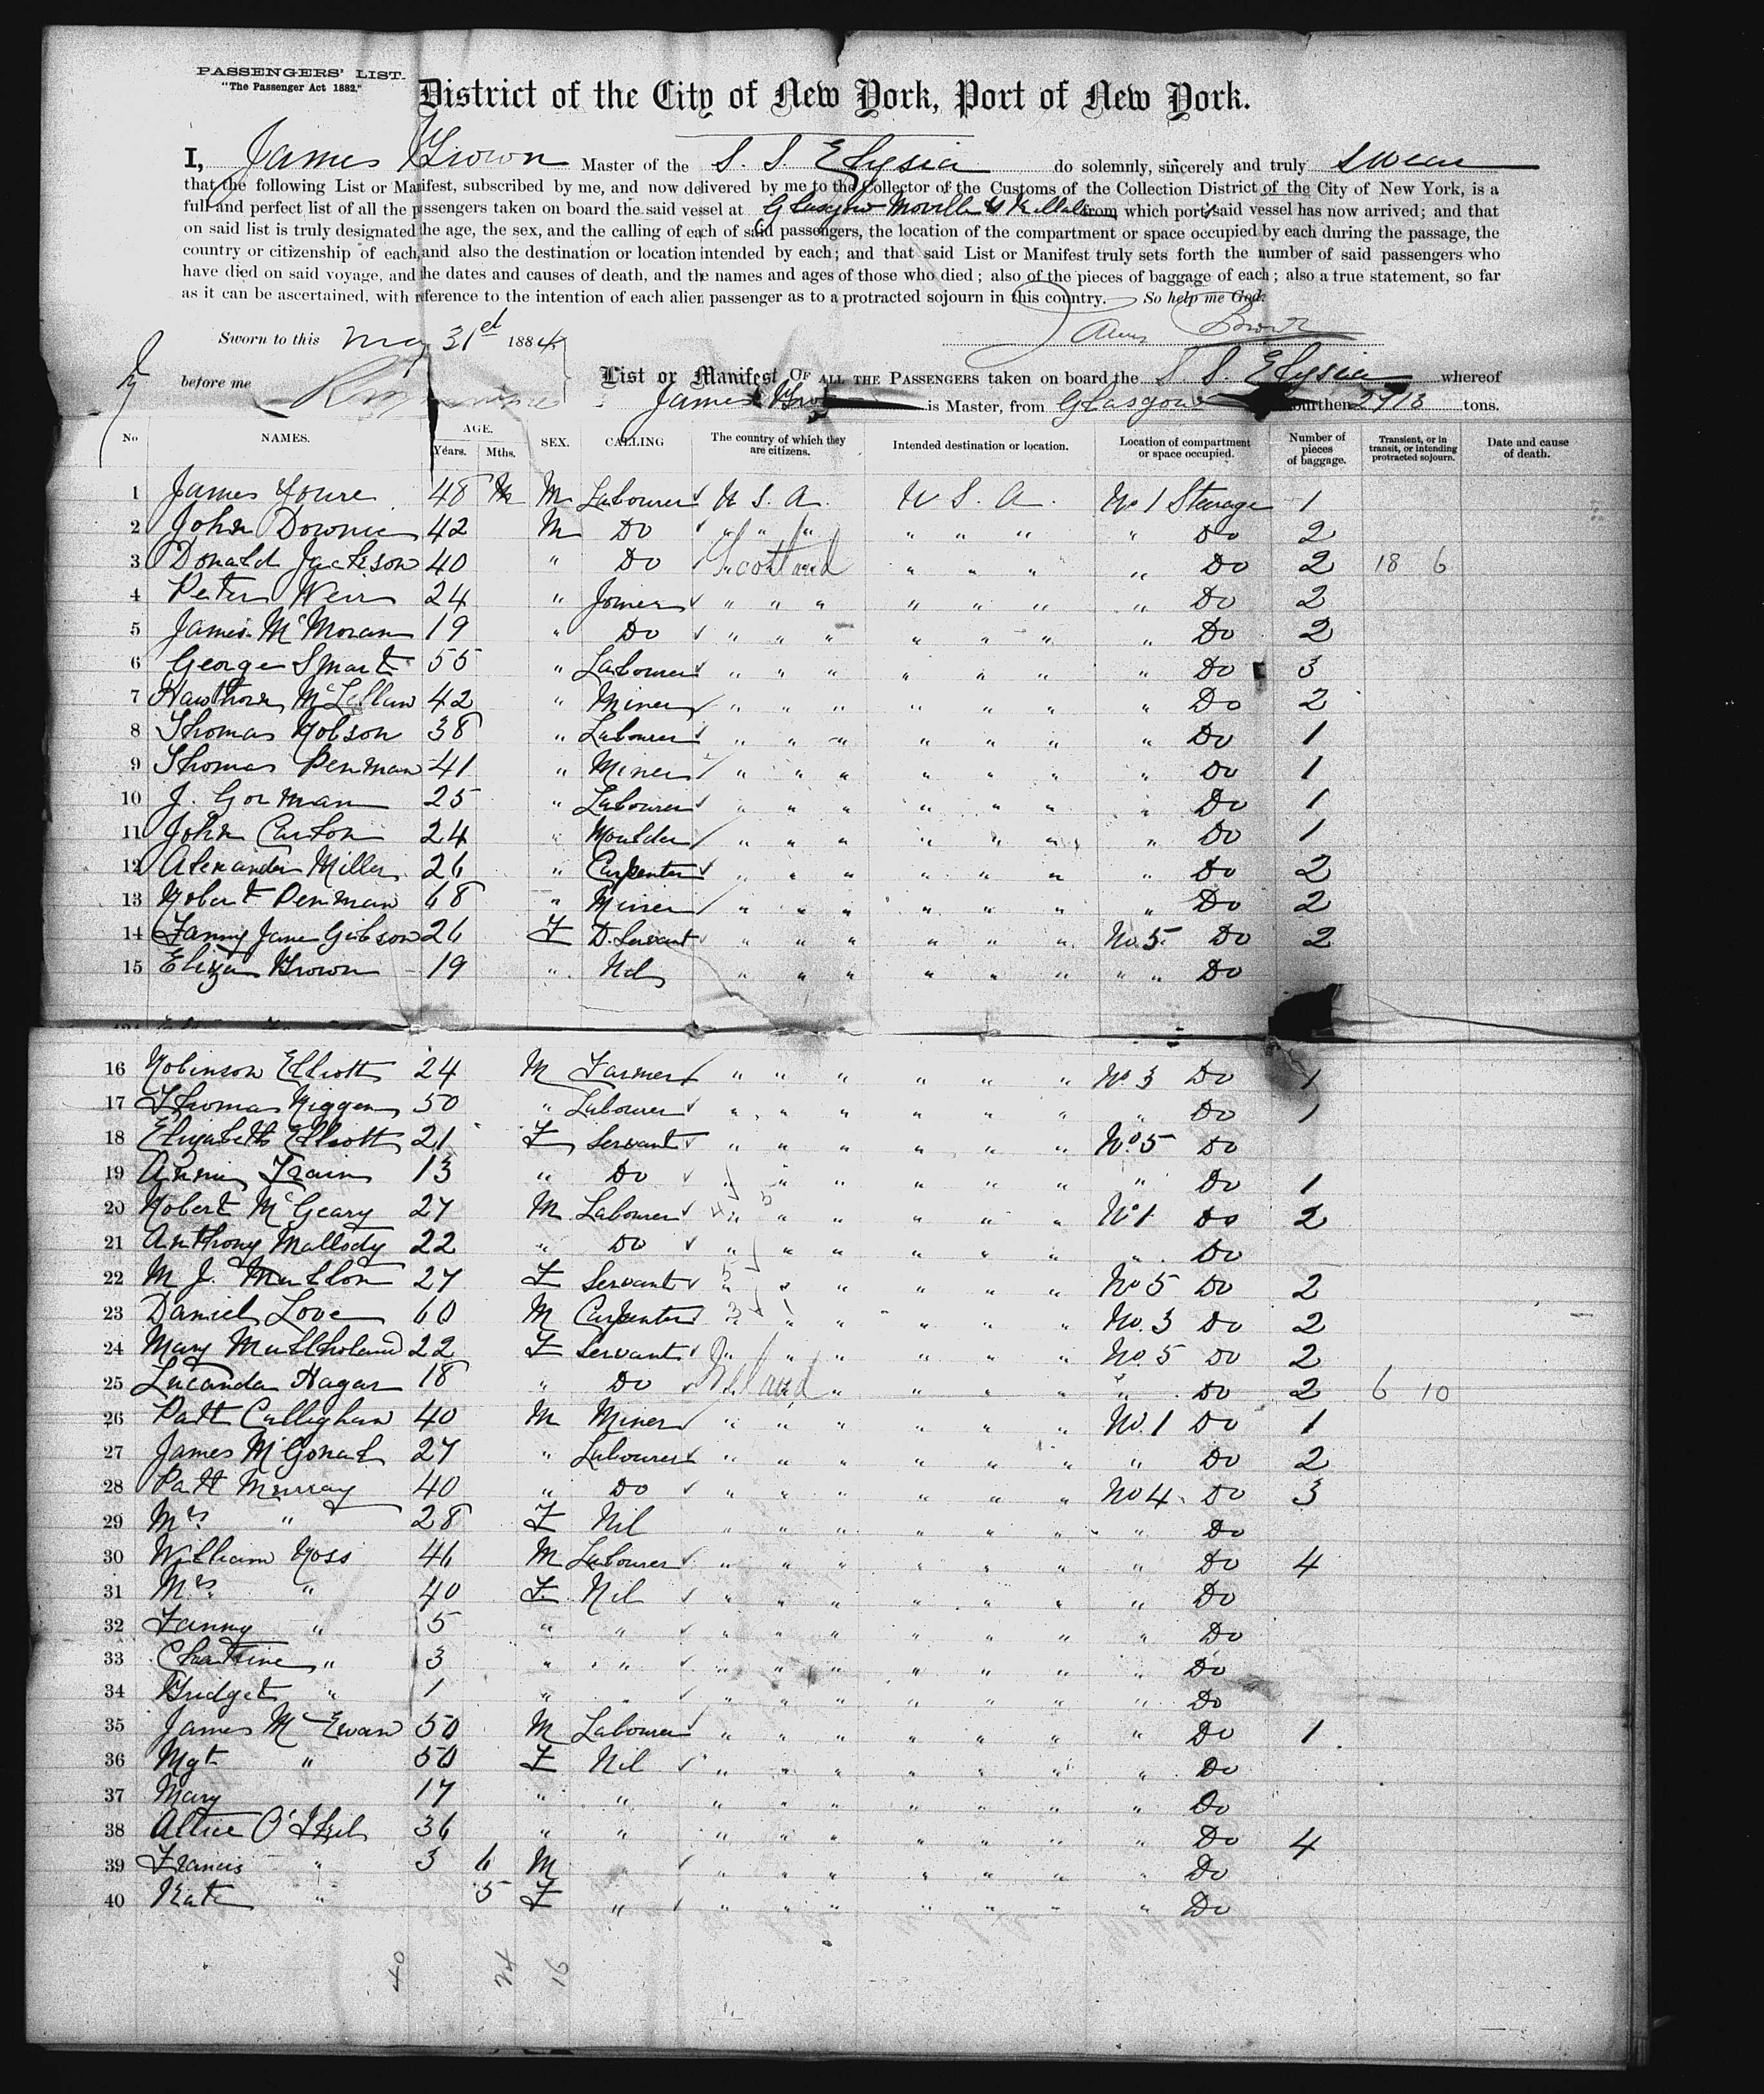 PASSENGERS' LIST.
"The Passenger Act 1882."
District of the City of New York, Port of New York.
I, James Brown Master of the S. S. Elysia do solemnly, sincerely and truly swear
that the following List or Manifest, subscribed by me, and now delivered by me to the Collector of the Customs of the Collection District of the City of New York, is a
full and perfect list of all the passengers taken on board the said vessel at Glasgow Moville & from which port said vessel has now arrived; and that
on said list is truly designated the age, the sex, and the calling of each of said passengers, the location of the compartment or space occupied by each during the passage, the
country or citizenship of each, and also the destination or location intended by each; and that said List or Manifest truly sets forth the number of said passengers who
have died on said voyage, and the dates and causes of death, and the names and ages of those who died; also of the pieces of baggage of each; also a true statement, so far
as it can be ascertained, with reference to the intention of each alien passenger as to a protracted sojourn in this country. So help me God.
James Brown
Sworn to this May 31st 1884
before me
List or Manifest OF ALL THE PASSENGERS taken on board the S S. Elysia whereof
James Brown is Master, from Glasgow burthen 2713 tons.
No NAMES. AGE. Years. Mths. SEX. CALLING The country of which they are citizens. Intended destination or location. Location of compartment or space occupied. Number of pieces of baggage. Transient, or in transit, or intending protracted sojourn. Date and cause of death.
1 James 48 M Labourer U S. A. U S. A. No 1 Steerage 1
2 John Downie 42 M Do " " " " " " " Do 2
3 Donald Jackson 40 " Do Scotland " " " " Do 2 18 6
4 Peter Weir 24 " Joiner " " " " " " " Do 2
5 James McMoran 19 " Do " " " " " " " Do 2
6 George Smart 55 " Labourer " " " " " " " Do 3
7 Hawthorn McLellan 42 " Miner " " " " " " " Do 2
8 Thomas Robson 38 " Labourer " " " " " " " Do 1
9 Thomas Penman 41 " Miner " " " " " " " Do 1
10 J. Gorman 25 " Labourer " " " " " " " Do 1
11 John Curton 24 " Moulder " " " " " " " Do 1
12 Alexander Miller 26 " Carpenter " " " " " " " Do 2
13 Robert Penman 68 " Miner " " " " " " " Do 2
14 Fanny Jane Gibson 26 F D. Servant " " " " " " No. 5 Do 2
15 Eliza Brown 19 " Nil " " " " " " " " Do
16 Robinson Elliott 24 M Farmer " " " " " " No 3 Do 1
17 Thomas 50 " Labourer " " " " " " " Do 1
18 Elizabeth Elliott 21 F Servant " " " " " " No 5 Do
19 Annie Train 13 " Do " " " " " " " Do 1
20 Robert McGeary 27 M Labourer " " " " " " No 1 Do 2
21 Anthony Mallody 22 " Do " " " " " " " Do
22 M J. Mullon 27 F Servant " " " " " " No 5 Do 2
23 Daniel Love 60 M Carpenter " " " " " No. 3 Do 2
24 Mary Mullholand 22 F Servant " " " " " " No. 5 Do 2
25 Lucanda Hagar 18 " Do Ireland " " " " " Do 2 6 10
26 Patt Calleghan 40 M Miner " " " " " " No. 1 Do 1
27 James McGonal 27 " Labourer " " " " " " " Do 2
28 Patt Murray 40 " Do " " " " " " No 4 Do 3
29 Mrs " 28 F Nil " " " " " " " Do
30 William Ross 46 M Labourer " " " " " " " Do 4
31 Mrs " 40 F Nil " " " " " " " Do
32 Fanny " 5 " " " " " " " " " Do
33 " 3 " " " " " " " " " Do
34 Bridget " 1 " " " " " " " " " Do
35 James McEwan 50 M Labourer " " " " " " " Do 1
36 Mgt " 50 F Nil " " " " " " " Do
37 Mary 17 " " " " " " " " " Do
38 36 " " " " " " " " " Do 4
39 Francis " 3 6 M " " " " " " " Do
40 Kate " 5 F " " " " " " " Do
40 24 16